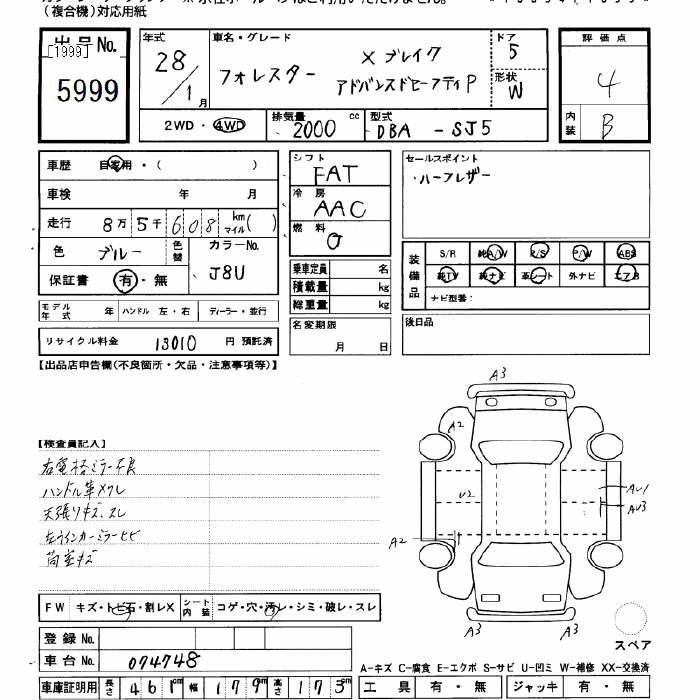 (複合機)対応用紙
出品 No.
[1999]
5999
年式
28/1月
車名・グレード
フォレスター
Xブレイク
アドバンスドセーフティP
ドア
5
形状
W
2WD・4WD
排気量 2000 cc
型式 DBA - SJ5
評価点
4
内装 B
車歴 自家用・( )
車検 年 月
走行 8万5千608 km マイル( )
色 ブルー 色替
カラーNo. J8U
保証書 有・無
シフト FAT
冷房 AAC
燃料 G
乗車定員 名
積載量 kg
総重量 kg
セールスポイント
・ハーフレザー
装備品
S/R 純A/W P/S P/W ABS
純TV 純ナビ 革シート 外ナビ エアB
ナビ型番:
モデル年式 年 ハンドル 左・右 ディーラー・並行
名変期限
月 日
後日品
リサイクル料金 13010 円 預託済
【出品店申告欄(不良箇所・欠品・注意事項等)】
【検査員記入】
右電格ミラー不良
ハンドル革メクレ
天張りキズ、スレ
左ウインカーミラーヒビ
荷室キズ
A3
A2
U2
AU1
AU3
A2
A3
A3
スペア
FW キズ・トビ石・割レX
シート内装 コゲ・穴・汚レ・シミ・破レ・スレ
登録 No.
車台 No. 074748
A-キズ C-腐食 E-エクボ S-サビ U-凹ミ W-補修 XX-交換済
車庫証明用 長さ 461cm 幅 179cm 高さ 173cm
工具 有・無 ジャッキ 有・無